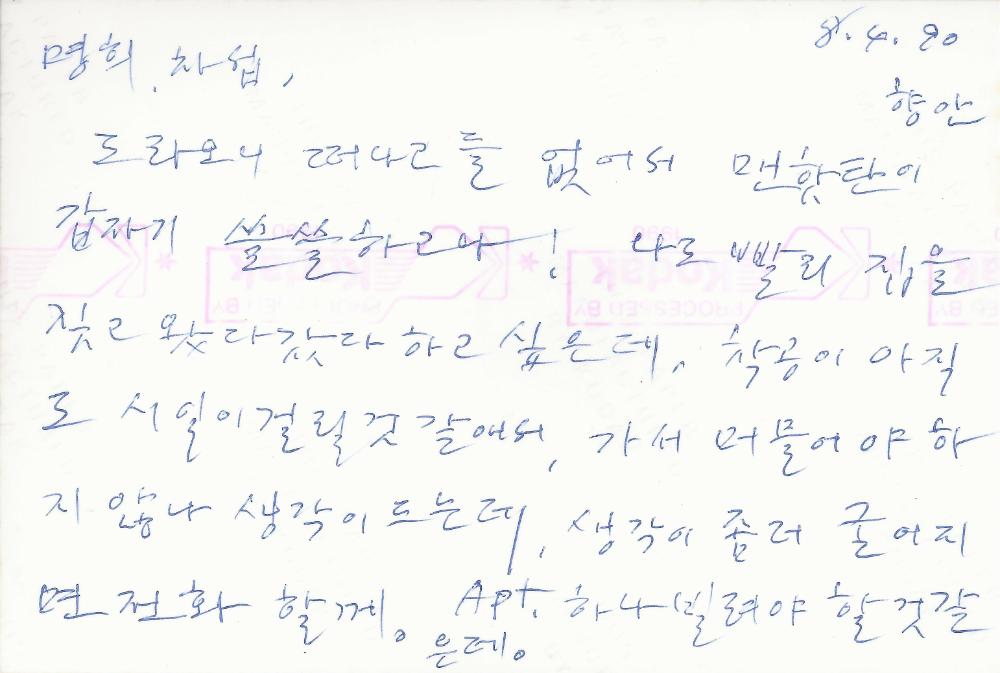 8. 4. 90
명희, 차섭,
향안
도라오니 떠나고들 없어서 맨핫탄이
갑자기 쓸쓸하고나! 나도 빨리 집을
짓고 왔다갔다 하고 싶은데, 착공이 아직
도 시일이 걸릴것 같애서, 가서 머물어야 하
지 않나 생각이 드는데, 생각이 좀더 굳어지
면 전화 할께. Apt. 하나 빌려야 할것같
은데.
1990
Kodak
PROCESSED BY